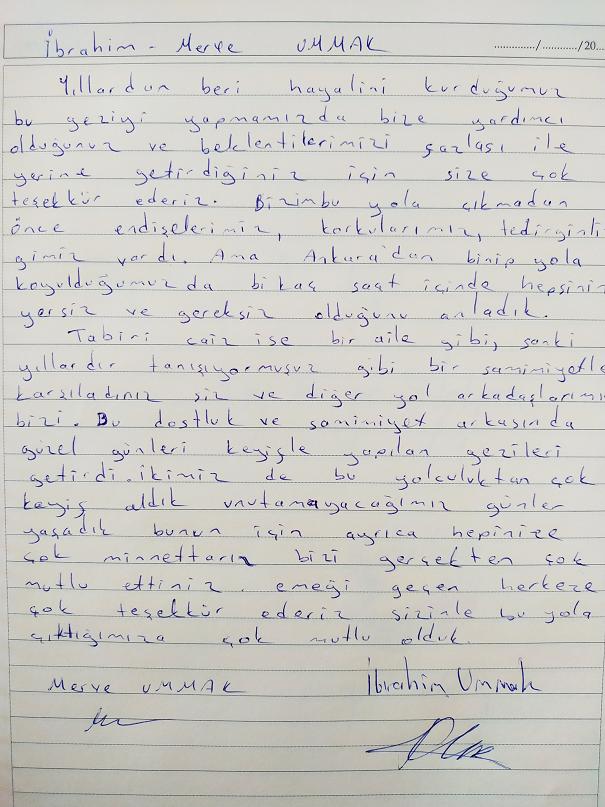 İbrahim - Merve UMMAK ............../............/20...
Yıllardan beri hayalini kurduğumuz
bu geziyi yapmamızda bize yardımcı
olduğunuz ve beklentilerimizi fazlası ile
yerine getirdiğiniz için size çok
teşekkür ederiz. Bizimbu yola çıkmadan
önce endişelerimiz, korkularımız, tedirginli
ğimiz vardı. Ama Ankara'dan binip yola
koyulduğumuzda bi kaç saat içinde hepsinin
yersiz ve gereksiz olduğunu anladık.
Tabiri caiz ise bir aile gibi, sanki
yıllardır tanışıyormuşuz gibi bir samimiyetle
karşıladınız siz ve diğer yol arkadaşlarımı
bizi. Bu dostluk ve samimiyet arkasında
güzel günleri keyifle yapılan gezileri
getirdi. ikimiz de bu yolculuktan çok
keyif aldık unutamayacağımız günler
yaşadık bunun için ayrıca hepinize
çok minnettarız bizi gerçekten çok
mutlu ettiniz. emeği geçen herkeze
çok teşekkür ederiz sizinle bu yola
çıktığımıza çok mutlu olduk.
Merve UMMAK İbrahim Ummak